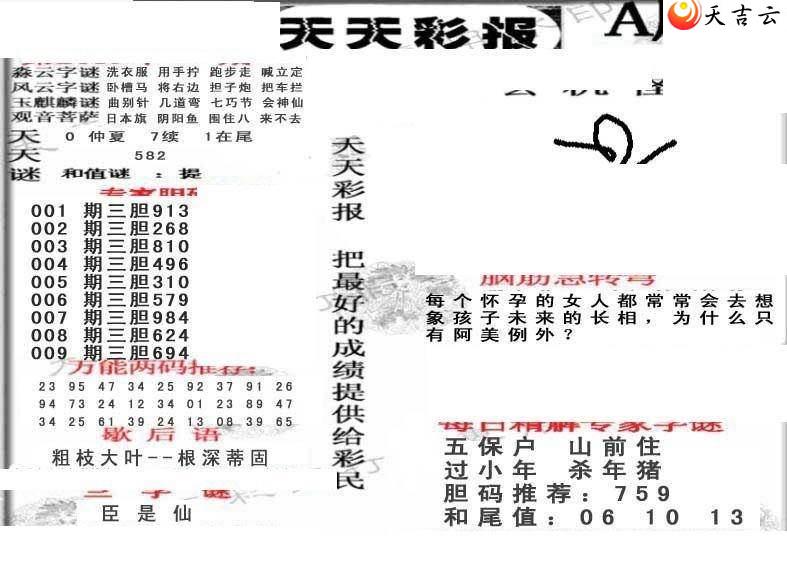 天天彩报
A
天吉云
森云字谜 洗衣服 用手拧 跑步走 喊立定
风云字谜 卧槽马 将右边 担子炮 把车拦
玉麒麟谜 曲别针 几道弯 七巧节 会神仙
观音菩萨 日本旗 阴阳鱼 围住八 来不去
天 0 仲夏 7续 1在尾
天 582
谜 和值谜 : 提
专家胆码
001 期三胆913
002 期三胆268
003 期三胆810
004 期三胆496
005 期三胆310
006 期三胆579
007 期三胆984
008 期三胆624
009 期三胆694
万能两码推荐:
23 95 47 34 25 92 37 91 26
94 73 24 12 34 01 23 89 47
34 25 61 39 24 13 08 39 65
歇后语
粗枝大叶--根深蒂固
三字谜
臣是仙
天天彩报 把最好的成绩提供给彩民
脑筋急转弯
每个怀孕的女人都常常会去想
象孩子未来的长相，为什么只
有阿美例外？
每日精解专家字谜
五保户 山前住
过小年 杀年猪
胆码推荐：759
和尾值：06 10 13